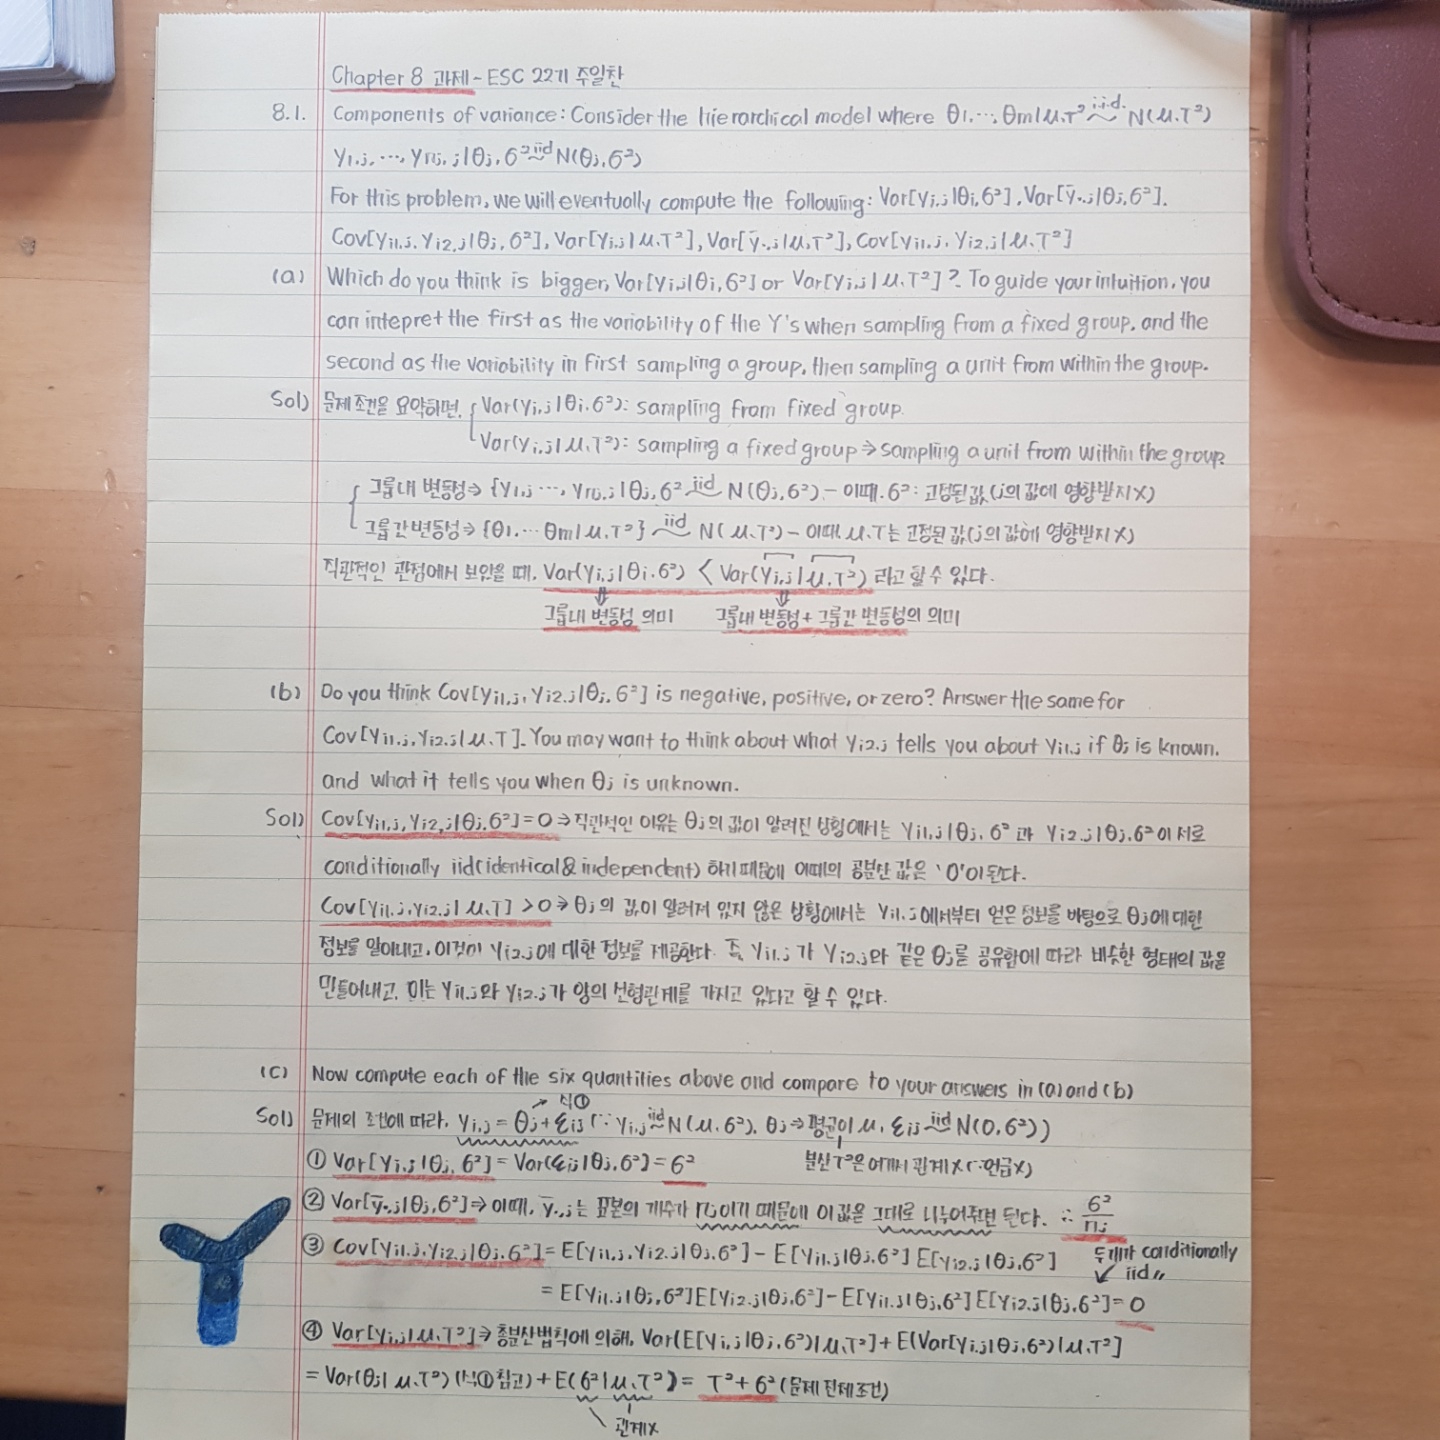 Chapter 8 과제 - ESC 22기 주일찬
8.1. Components of variance: Consider the hierarchical model where θ1, ..., θm | μ, τ² i.i.d. ~ N(μ, τ²)
y1,j, ..., ynj,j | θj, σ² iid ~ N(θj, σ²)
For this problem, we will eventually compute the following: Var[yi,j | θi, σ²], Var[ȳ·,j | θj, σ²],
Cov[yi1,j, yi2,j | θj, σ²], Var[yi,j | μ, τ²], Var[ȳ·,j | μ, τ²], Cov[yi1,j, yi2,j | μ, τ²]
(a) Which do you think is bigger, Var[yi,j | θi, σ²] or Var[yi,j | μ, τ²]? To guide your intuition, you
can intepret the first as the variability of the Y's when sampling from a fixed group, and the
second as the variability in first sampling a group, then sampling a unit from within the group.
Sol) 문제 조건을 요약하면, { Var(yi,j | θi, σ²): sampling from fixed group.
Var(yi,j | μ, τ²): sampling a fixed group ⇒ sampling a unit from within the group.
{ 그룹내 변동성 ⇒ {y1,j ..., ynj,j | θj, σ² iid ~ N(θj, σ²) - 이때, σ²: 고정된 값 (j의 값에 영향받지 X)
그룹간 변동성 ⇒ {θ1, ... θm | μ, τ²} iid ~ N(μ, τ²) - 이때 μ, τ는 고정된 값(j의 값에 영향받지 X)
직관적인 관점에서 보았을 때, Var(yi,j | θi, σ²) < Var(yi,j | μ, τ²) 라고 할 수 있다.
⇓ ⇓
그룹내 변동성 의미 그룹내 변동성 + 그룹간 변동성의 의미
(b) Do you think Cov[yi1,j, yi2,j | θj, σ²] is negative, positive, or zero? Answer the same for
Cov[yi1,j, yi2,j | μ, τ]. You may want to think about what yi2,j tells you about yi1,j if θj is known,
and what it tells you when θj is unknown.
Sol) Cov[yi1,j, yi2,j | θj, σ²] = 0 ⇒ 직관적인 이유는 θj의 값이 알려진 상황에서는 yi1,j | θj, σ² 과 yi2,j | θj, σ² 이 서로
conditionally iid (identical & independent) 하기 때문에 이때의 공분산 값은 '0'이 된다.
Cov[yi1,j, yi2,j | μ, τ] > 0 ⇒ θj의 값이 알려져 있지 않은 상황에서는 yi1,j에서부터 얻은 정보를 바탕으로 θj에 대한
정보를 알아내고, 이것이 yi2,j에 대한 정보를 제공한다. 즉, yi1,j가 yi2,j와 같은 θj를 공유함에 따라 비슷한 형태의 값을
만들어내고, 이는 yi1,j와 yi2,j가 양의 선형관계를 가지고 있다고 할 수 있다.
(c) Now compute each of the six quantities above and compare to your answers in (a) and (b)
↗ 식①
Sol) 문제의 조건에 따라, yi,j = θj + εij (∵ yi,j iid ~ N(μ, σ²), θj ⇒ 평균이 μ, εij iid ~ N(0, σ²))
① Var[yi,j | θj, σ²] = Var(εij | θj, σ²) = σ² 분산 τ²은 여기서 관계 X (∵ 언급 X)
② Var[ȳ·,j | θj, σ²] ⇒ 이때, ȳ·,j는 표본의 개수가 nj이기 때문에 이 값을 그대로 나누어주면 된다. ∴ σ²/nj
③ Cov[yi1,j, yi2,j | θj, σ²] = E[yi1,j, yi2,j | θj, σ²] - E[yi1,j | θj, σ²] E[yi2,j | θj, σ²] 두개가 conditionally
↙ iid〃
= E[yi1,j | θj, σ²] E[yi2,j | θj, σ²] - E[yi1,j | θj, σ²] E[yi2,j | θj, σ²] = 0
④ Var[yi,j | μ, τ²] ⇒ 총분산법칙에 의해, Var(E[yi,j | θj, σ²) | μ, τ²] + E(Var[yi,j | θj, σ²) | μ, τ²]
= Var(θj | μ, τ²) (식① 참고) + E(σ² | μ, τ²) = τ² + σ² (문제 전제 조건)
관계X